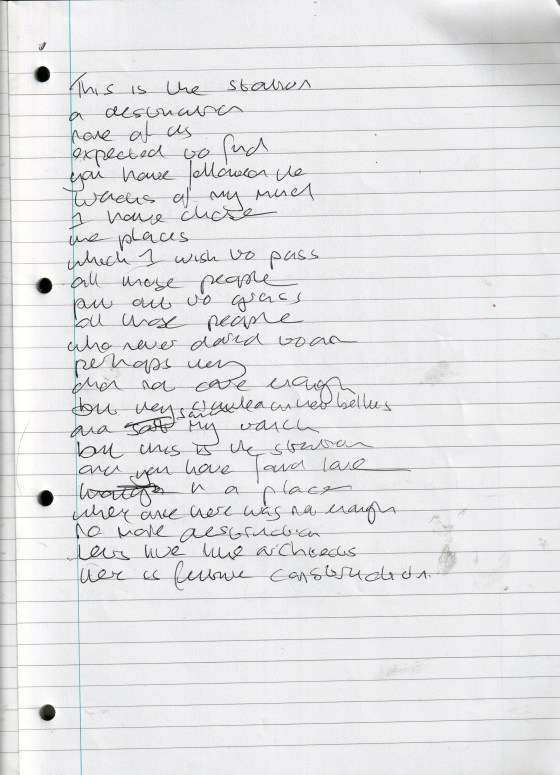 This is the station
a destination
none of us
expected to find
you have followed the
tracks of my mind
I have chose
the places
which I wish to pass
all those people
put out to grass
all those people
who never dared
perhaps they
did not care enough
but they
and my
but this is the station
and you have found love
in a place
where there was not enough
no more destruction
lets live like architects
here is future construction.